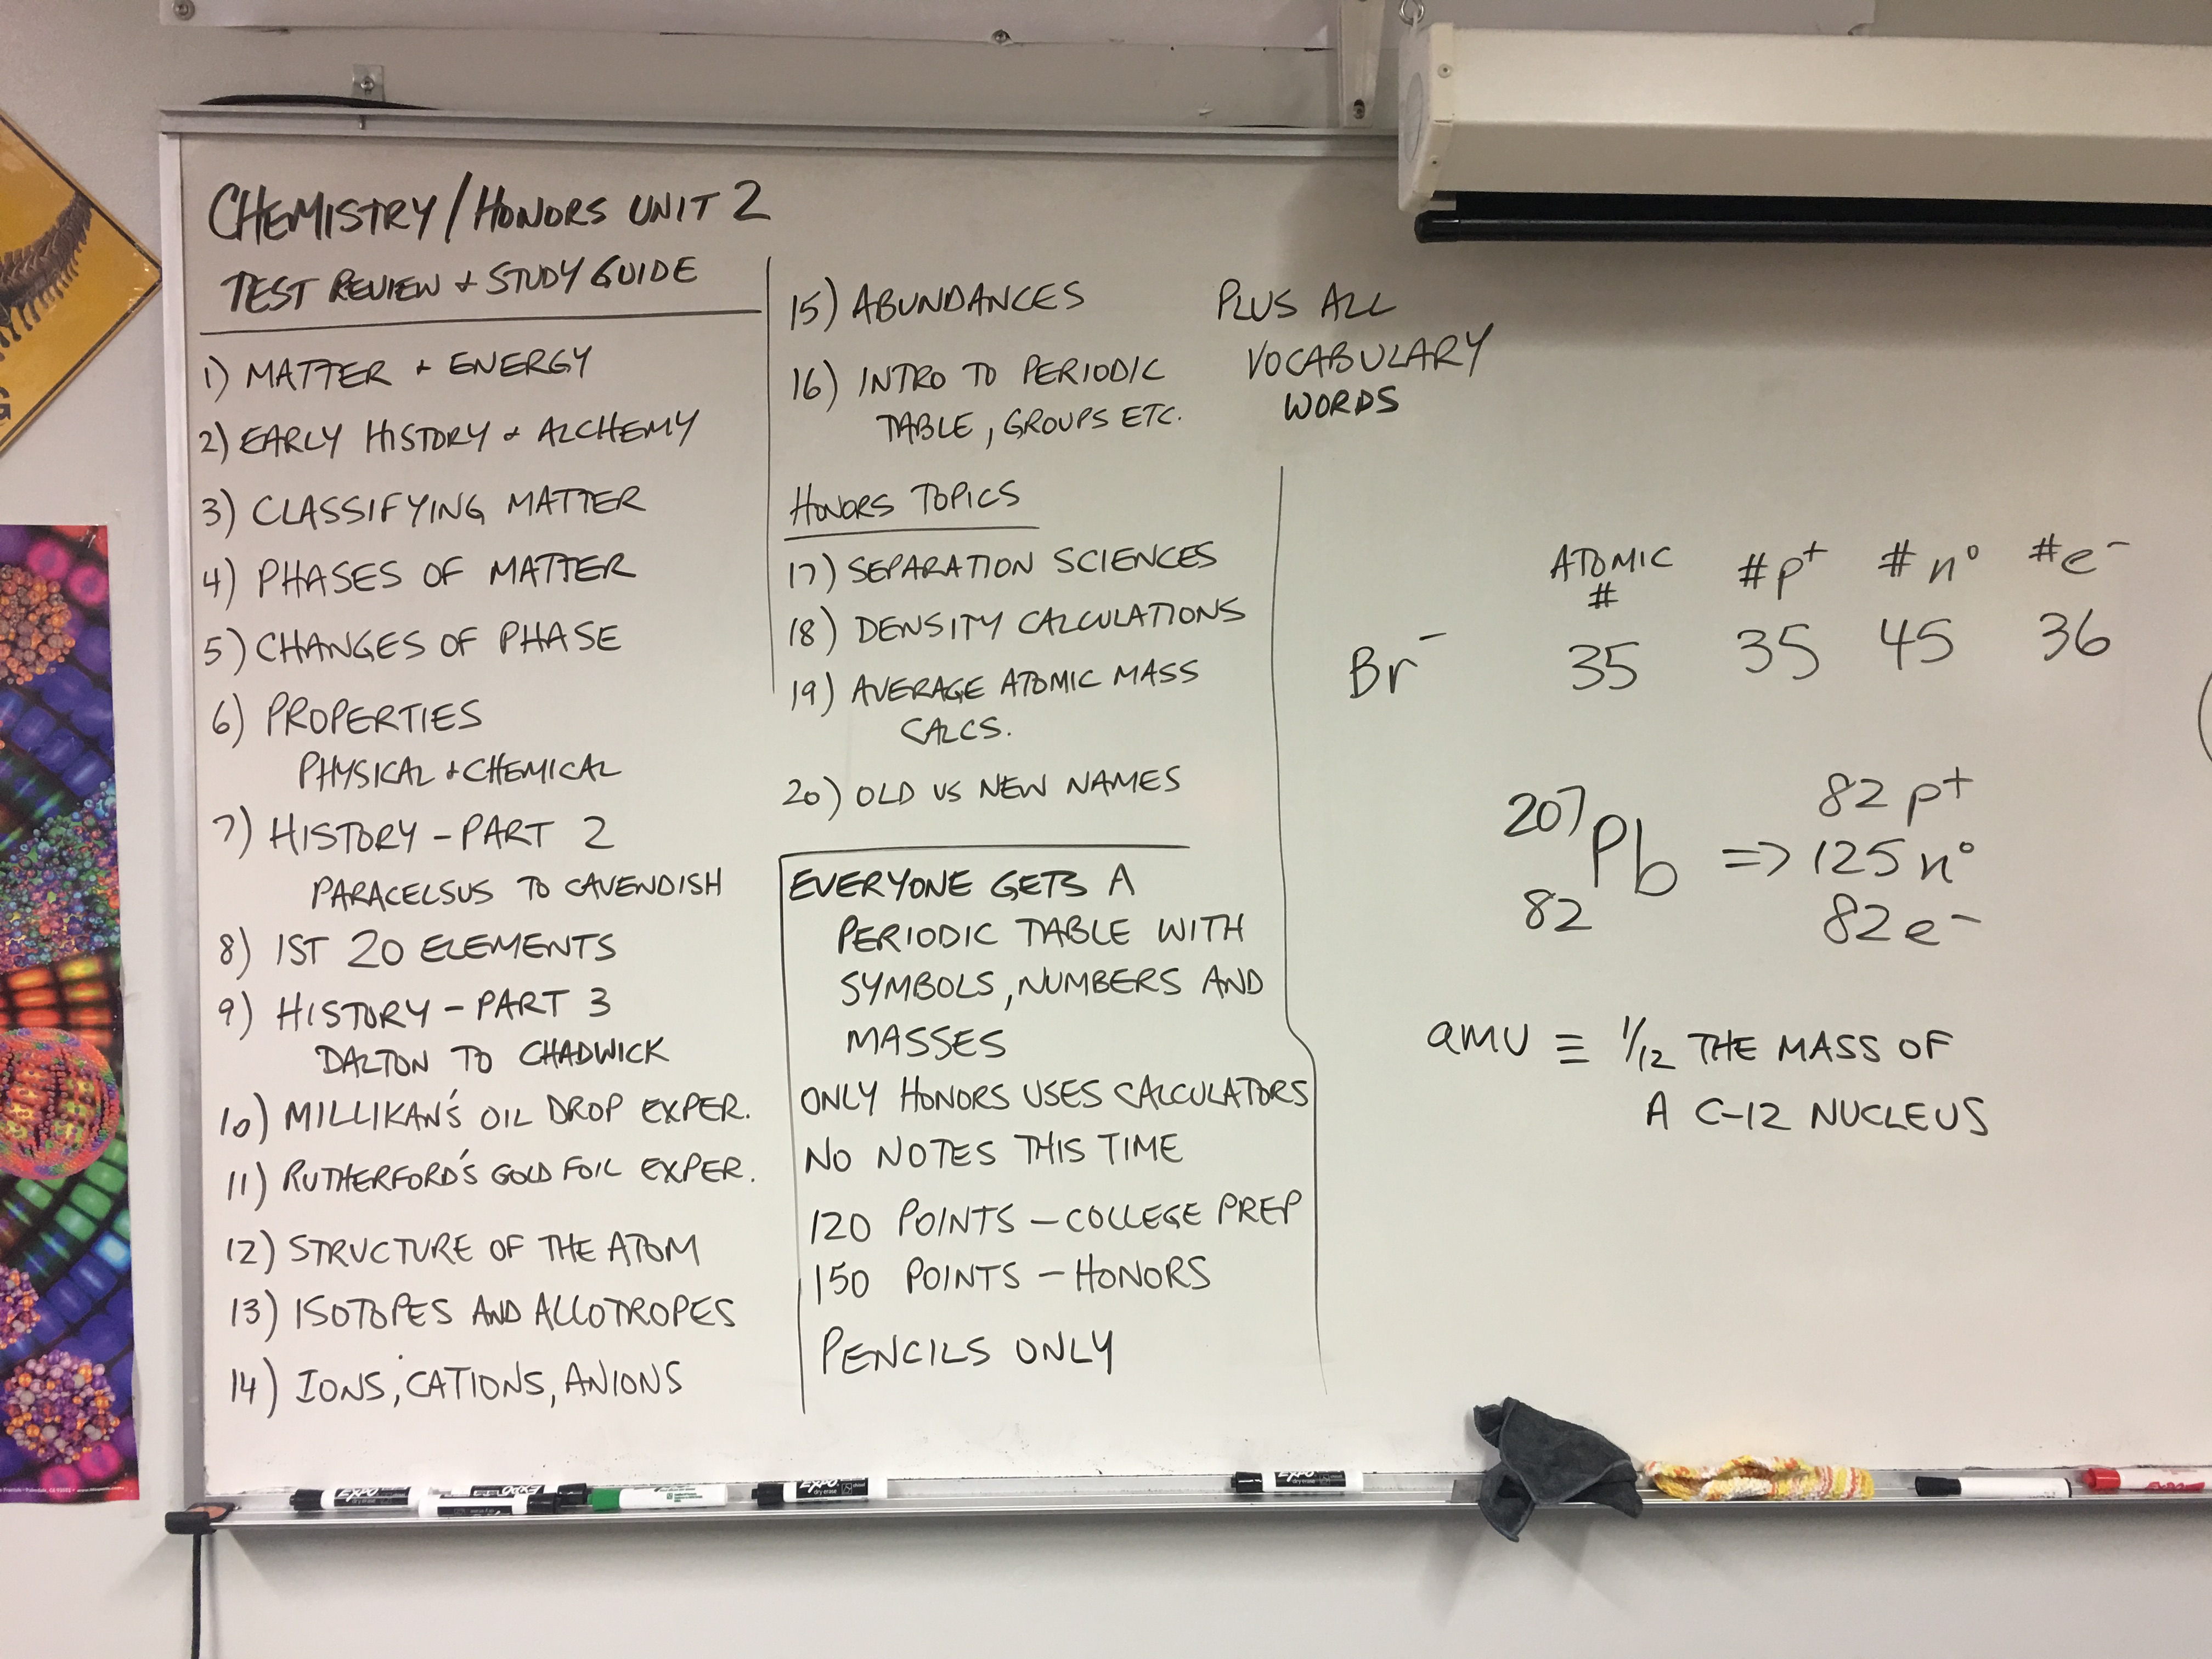 CHEMISTRY/HONORS UNIT 2
TEST REVIEW + STUDY GUIDE
1) MATTER + ENERGY
2) EARLY HISTORY + ALCHEMY
3) CLASSIFYING MATTER
4) PHASES OF MATTER
5) CHANGES OF PHASE
6) PROPERTIES
PHYSICAL + CHEMICAL
7) HISTORY - PART 2
PARACELSUS TO CAVENDISH
8) 1ST 20 ELEMENTS
9) HISTORY - PART 3
DALTON TO CHADWICK
10) MILLIKAN'S OIL DROP EXPER.
11) RUTHERFORD'S GOLD FOIL EXPER.
12) STRUCTURE OF THE ATOM
13) ISOTOPES AND ALLOTROPES
14) IONS, CATIONS, ANIONS
15) ABUNDANCES
16) INTRO TO PERIODIC
TABLE, GROUPS ETC.
HONORS TOPICS
17) SEPARATION SCIENCES
18) DENSITY CALCULATIONS
19) AVERAGE ATOMIC MASS
CALCS.
20) OLD VS NEW NAMES
EVERYONE GETS A
PERIODIC TABLE WITH
SYMBOLS, NUMBERS AND
MASSES
ONLY HONORS USES CALCULATORS
NO NOTES THIS TIME
120 POINTS - COLLEGE PREP
150 POINTS - HONORS
PENCILS ONLY
PLUS ALL
VOCABULARY
WORDS
ATOMIC # #p⁺ #n⁰ #e⁻
Br⁻ 35 35 45 36
82 p⁺
207 Pb => 125 n⁰
82 82 e⁻
amu ≡ 1/12 THE MASS OF
A C-12 NUCLEUS
EXPO
EXPO
EXPO